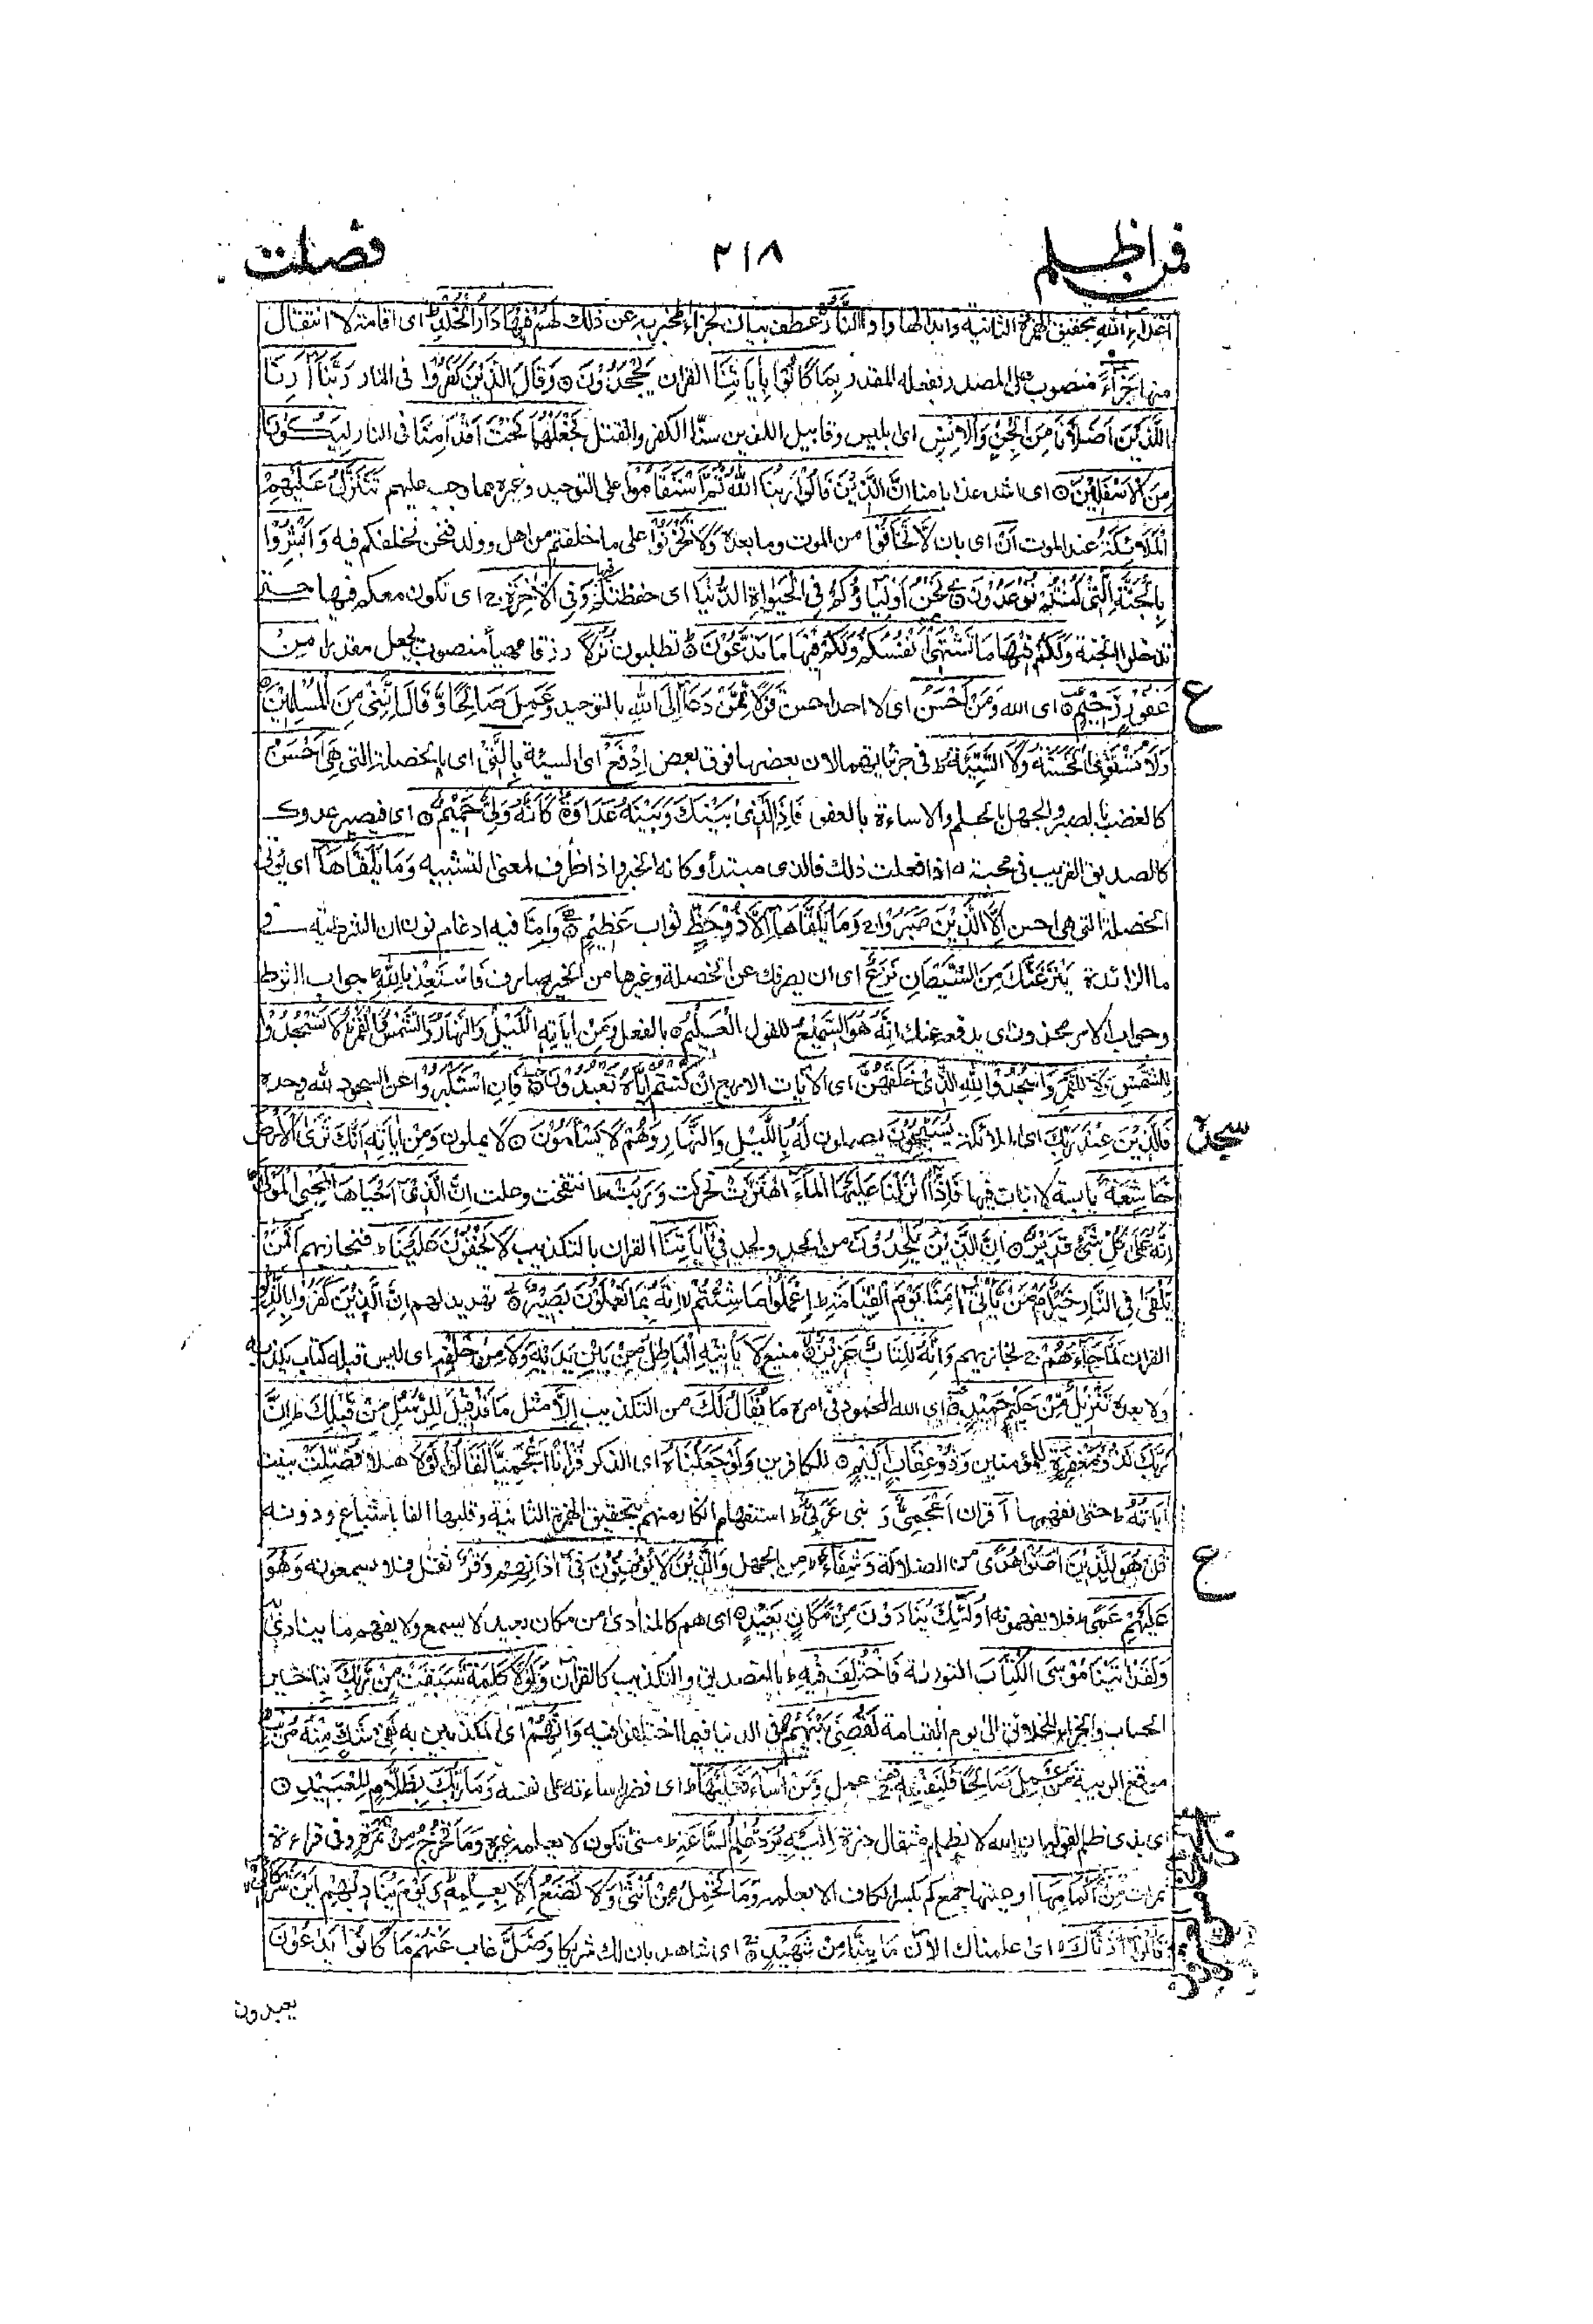 فمن اظلم
٢١٨
فصلت
اَعْدَاءِ اللّٰهِ بتحقيق الهمزة الثانية وابدالها واوا النَّارُ عطف بيان لجزاء المخبر به عن ذلك لَهُمْ فِيْهَا دَارُ الْخُلْدِ ط اى اقامة لا انتقال
منها جَزَاءً منصوب على المصدر بفعله المقدر بِمَا كَانُوْا بِاٰيَاتِنَا القران يَجْحَدُوْنَ ○ وَقَالَ الَّذِيْنَ كَفَرُوْا فى النار رَبَّنَا اَرِنَا
الَّذَيْنِ اَضَلَّانَا مِنَ الْجِنِّ وَالْاِنْسِ اى ابليس وقابيل اللذين سنّا الكفر والقتل نَجْعَلْهُمَا تَحْتَ اَقْدَامِنَا فى النار لِيَكُوْنَا
مِنَ الْاَسْفَلِيْنَ ○ اى اشد عذابا منا اِنَّ الَّذِيْنَ قَالُوْا رَبُّنَا اللّٰهُ ثُمَّ اسْتَقَامُوْا على التوحيد وغيره مما وجب عليهم تَتَنَزَّلُ عَلَيْهِمُ
الْمَلٰٓئِكَةُ عند الموت اَنْ اى بان لَّا تَخَافُوْا من الموت وما بعده وَلَا تَحْزَنُوْا على ما خلفتم من اهل وولد فنحن نخلفكم فيه وَاَبْشِرُوْا
بِالْجَنَّةِ الَّتِىْ كُنْتُمْ تُوْعَدُوْنَ ○ نَحْنُ اَوْلِيَاؤُكُمْ فِى الْحَيٰوةِ الدُّنْيَا اى حفظناكم فيها وَفِى الْاٰخِرَةِ ج اى نكون معكم فيها حتى
تدخلوا الجنة وَلَكُمْ فِيْهَا مَا تَشْتَهِىْ اَنْفُسُكُمْ وَلَكُمْ فِيْهَا مَا تَدَّعُوْنَ ط تطلبون نُزُلًا رزقا مهيأ منصوب بجعل مقدرا مِنْ
غَفُوْرٍ رَّحِيْمٍ ○ اى الله وَمَنْ اَحْسَنُ اى لا احد احسن قَوْلًا مِّمَّنْ دَعَا اِلَى اللّٰهِ بالتوحيد وَعَمِلَ صَالِحًا وَّقَالَ اِنَّنِىْ مِنَ الْمُسْلِمِيْنَ ○
ع
وَلَا تَسْتَوِى الْحَسَنَةُ وَلَا السَّيِّئَةُ ط فى جزئياتهما لان بعضها فوق بعض اِدْفَعْ اى السيئة بِالَّتِىْ اى بالخصلة التى هِىَ اَحْسَنُ
كالغضب بالصبر والجهل بالحلم والاساءة بالعفو فَاِذَا الَّذِىْ بَيْنَكَ وَبَيْنَهُ عَدَاوَةٌ كَاَنَّهُ وَلِىٌّ حَمِيْمٌ ○ اى فيصير عدوك
كالصديق القريب فى محبته اذا فعلت ذلك فالذى مبتدأ وكانه الخبر واذا ظرف لمعنى التشبيه وَمَا يُلَقَّاهَا اى يؤتى
الخصلة التى هى احسن اِلَّا الَّذِيْنَ صَبَرُوْا ج وَمَا يُلَقَّاهَا اِلَّا ذُوْ حَظٍّ ثواب عَظِيْمٍ ○ وَاِمَّا فيه ادغام نون ان الشرطية فى
ما الزائدة يَنْزَغَنَّكَ مِنَ الشَّيْطَانِ نَزْغٌ اى ان يصرفك عن الخصلة وغيرها من الخير صارف فَاسْتَعِذْ بِاللّٰهِ ط جواب الشرط
وجواب الامر محذوف اى يدفعه عنك اِنَّهُ هُوَ السَّمِيْعُ للقول الْعَلِيْمُ ○ بالفعل وَمِنْ اٰيَاتِهِ اللَّيْلُ وَالنَّهَارُ وَالشَّمْسُ وَالْقَمَرُ ط لَا تَسْجُدُوْا
لِلشَّمْسِ وَلَا لِلْقَمَرِ وَاسْجُدُوْا لِلّٰهِ الَّذِىْ خَلَقَهُنَّ اى الايات الاربع اِنْ كُنْتُمْ اِيَّاهُ تَعْبُدُوْنَ ○ فَاِنِ اسْتَكْبَرُوْا عن السجود لله وحده
فَالَّذِيْنَ عِنْدَ رَبِّكَ اى الملائكة يُسَبِّحُوْنَ يصلون لَهُ بِاللَّيْلِ وَالنَّهَارِ وَهُمْ لَا يَسْاَمُوْنَ ○ لا يملون وَمِنْ اٰيَاتِهِ اَنَّكَ تَرَى الْاَرْضَ
سجدة
خَاشِعَةً يابسة لا نبات فيها فَاِذَا اَنْزَلْنَا عَلَيْهَا الْمَاءَ اهْتَزَّتْ تحركت وَرَبَتْ ط انتفخت وعلت اِنَّ الَّذِىْ اَحْيَاهَا لَمُحْىِ الْمَوْتٰى ط
اِنَّهُ عَلٰى كُلِّ شَىْءٍ قَدِيْرٌ ○ اِنَّ الَّذِيْنَ يُلْحِدُوْنَ من الحد ولحد فِىْ اٰيَاتِنَا القران بالتكذيب لَا يَخْفَوْنَ عَلَيْنَا ط فنجازيهم اَفَمَنْ
يُّلْقٰى فِى النَّارِ خَيْرٌ اَمْ مَّنْ يَّاْتِىْ اٰمِنًا يَّوْمَ الْقِيَامَةِ ط اِعْمَلُوْا مَا شِئْتُمْ اِنَّهُ بِمَا تَعْمَلُوْنَ بَصِيْرٌ ○ تهديد لهم اِنَّ الَّذِيْنَ كَفَرُوْا بِالذِّكْرِ
القران لَمَّا جَاءَهُمْ ج نجازيهم وَاِنَّهُ لَكِتَابٌ عَزِيْزٌ ○ منيع لَا يَاْتِيْهِ الْبَاطِلُ مِنْ بَيْنِ يَدَيْهِ وَلَا مِنْ خَلْفِهِ ط اى ليس قبله كتاب يكذبه
ولا بعده تَنْزِيْلٌ مِّنْ حَكِيْمٍ حَمِيْدٍ ○ اى الله المحمود فى امره مَا يُقَالُ لَكَ من التكذيب اِلَّا مثل مَا قَدْ قِيْلَ لِلرُّسُلِ مِنْ قَبْلِكَ ط اِنَّ
رَبَّكَ لَذُوْ مَغْفِرَةٍ للمؤمنين وَّذُوْ عِقَابٍ اَلِيْمٍ ○ للكافرين وَلَوْ جَعَلْنَاهُ اى الذكر قُرْاٰنًا اَعْجَمِيًّا لَّقَالُوْا لَوْلَا هلا فُصِّلَتْ بينت
اٰيَاتُهُ ط حتى نفهمها أ قران اَعْجَمِىٌّ وَ نبى عَرَبِىٌّ ط استفهام انكار منهم بتحقيق الهمزة الثانية وقلبها الفا باشباع ودونه
قُلْ هُوَ لِلَّذِيْنَ اٰمَنُوْا هُدًى من الضلالة وَّشِفَاءٌ ط من الجهل وَالَّذِيْنَ لَا يُؤْمِنُوْنَ فِىْ اٰذَانِهِمْ وَقْرٌ ثقل فلا يسمعونه وَهُوَ
ج
عَلَيْهِمْ عَمًى ط فلا يفهمونه اُولٰئِكَ يُنَادَوْنَ مِنْ مَّكَانٍ بَعِيْدٍ ○ اى هم كالمنادى من مكان بعيد لا يسمع ولا يفهم ما ينادى به
وَلَقَدْ اٰتَيْنَا مُوْسَى الْكِتَابَ التوراة فَاخْتُلِفَ فِيْهِ ط بالتصديق والتكذيب كالقران وَلَوْلَا كَلِمَةٌ سَبَقَتْ مِنْ رَّبِّكَ بتاخير
الحساب والجزاء للخلائق الى يوم القيامة لَقُضِىَ بَيْنَهُمْ ط فى الدنيا فيما اختلفوا فيه وَاِنَّهُمْ اى المكذبين به لَفِىْ شَكٍّ مِّنْهُ مُرِيْبٍ ○
موقع الريبة مَنْ عَمِلَ صَالِحًا فَلِنَفْسِهِ ج عمل وَمَنْ اَسَاءَ فَعَلَيْهَا ط اى فضرر اساءته على نفسه وَمَا رَبُّكَ بِظَلَّامٍ لِّلْعَبِيْدِ ○
اى بذى ظلم لقوله ان الله لا يظلم مثقال ذرة اِلَيْهِ يُرَدُّ عِلْمُ السَّاعَةِ ط متى تكون لا يعلمه غيره وَمَا تَخْرُجُ مِنْ ثَمَرَةٍ وفى قراءة
ثمرات مِّنْ اَكْمَامِهَا اوعيتها جمع كم بكسر الكاف الا بعلمه وَمَا تَحْمِلُ مِنْ اُنْثٰى وَلَا تَضَعُ اِلَّا بِعِلْمِهِ ط وَيَوْمَ يُنَادِيْهِمْ اَيْنَ شُرَكَائِىْ
قَالُوْا اٰذَنَّاكَ اى علمناك الان مَا مِنَّا مِنْ شَهِيْدٍ ○ اى شاهد بان لك شريكا وَضَلَّ غاب عَنْهُمْ مَا كَانُوْا يَدْعُوْنَ
يعبدون